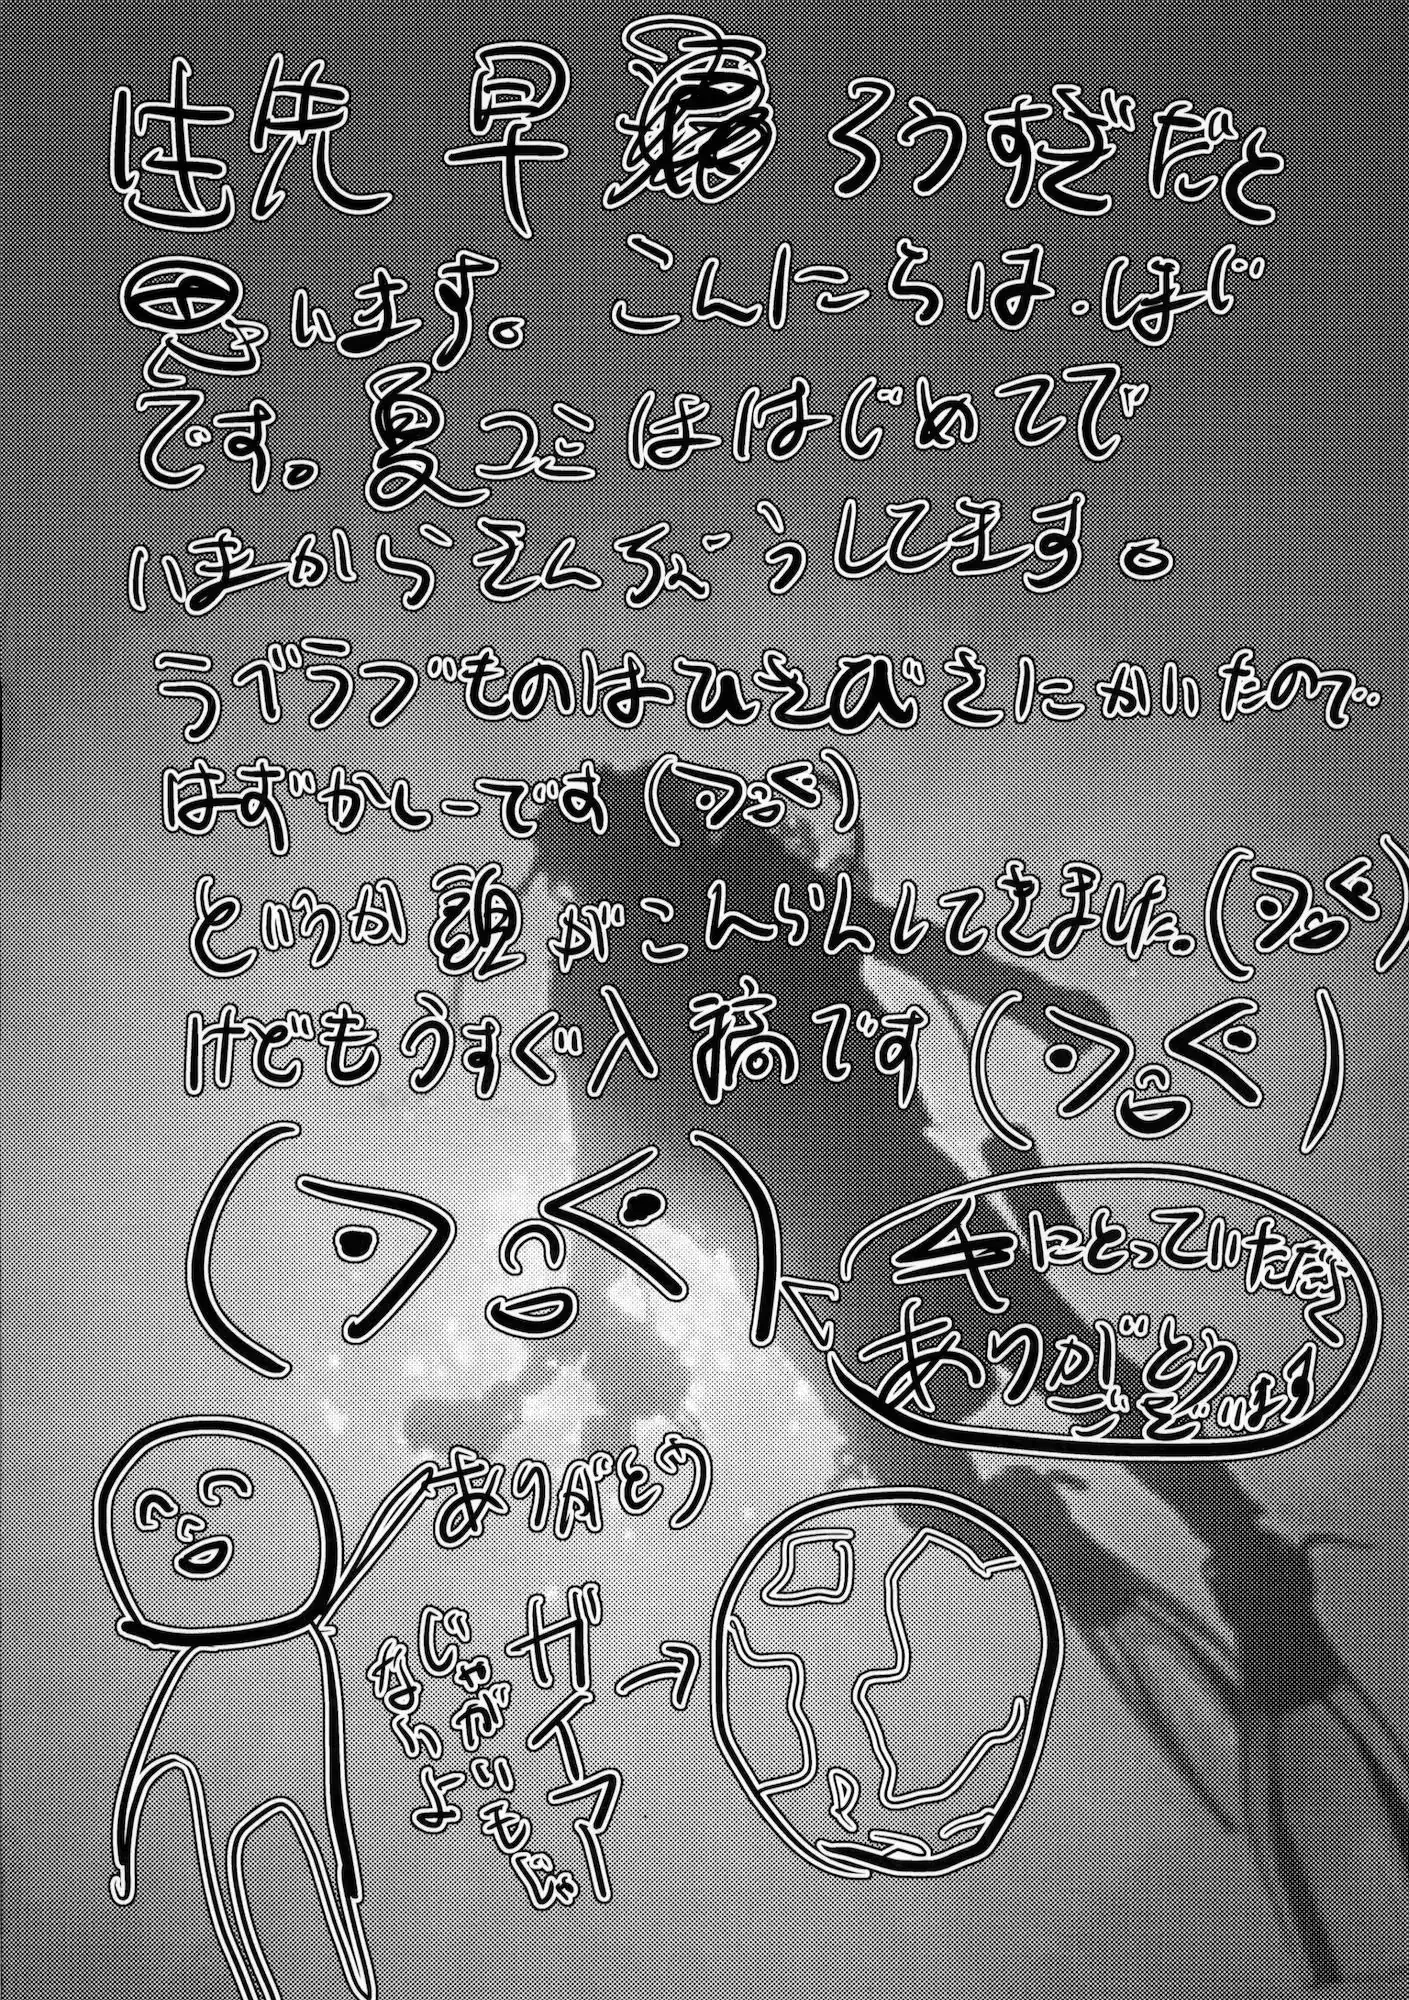 早 ろうすぎだと
思います。こんにちは.ほじ
です。夏コミははじめてで
いまからぞんぶうしてます。
ラブラブものはひさびさにかいたので
はずかしーです
というか頭がこんらんしてきました。
けどもうすぐ入稿です
手にとっていただく
ありがとう
ございます
ありがとう
ガイアー
じゃがいもじゃ
ないよ